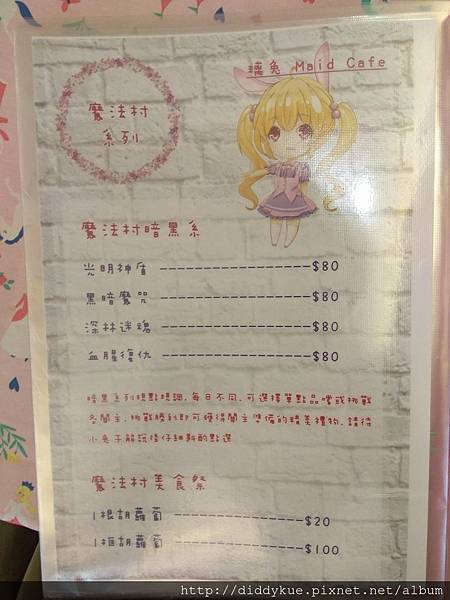 璃兔 Maid Cafe
魔法村
系列
魔法村暗黑系
光明神盾 --------------------$80
黑暗魔咒 --------------------$80
深林迷魂 --------------------$80
血腥復仇 --------------------$80
暗黑系列現點現調,每日不同,可選擇單點品嚐或挑戰
各關主,挑戰勝利即可獲得關主準備的精美禮物,請待
小兔子解說後仔細斟酌點選
魔法村美食祭
1根胡蘿蔔 -----------------$20
1框胡蘿蔔 -----------------$100
http://diddykue.pixnet.net/album